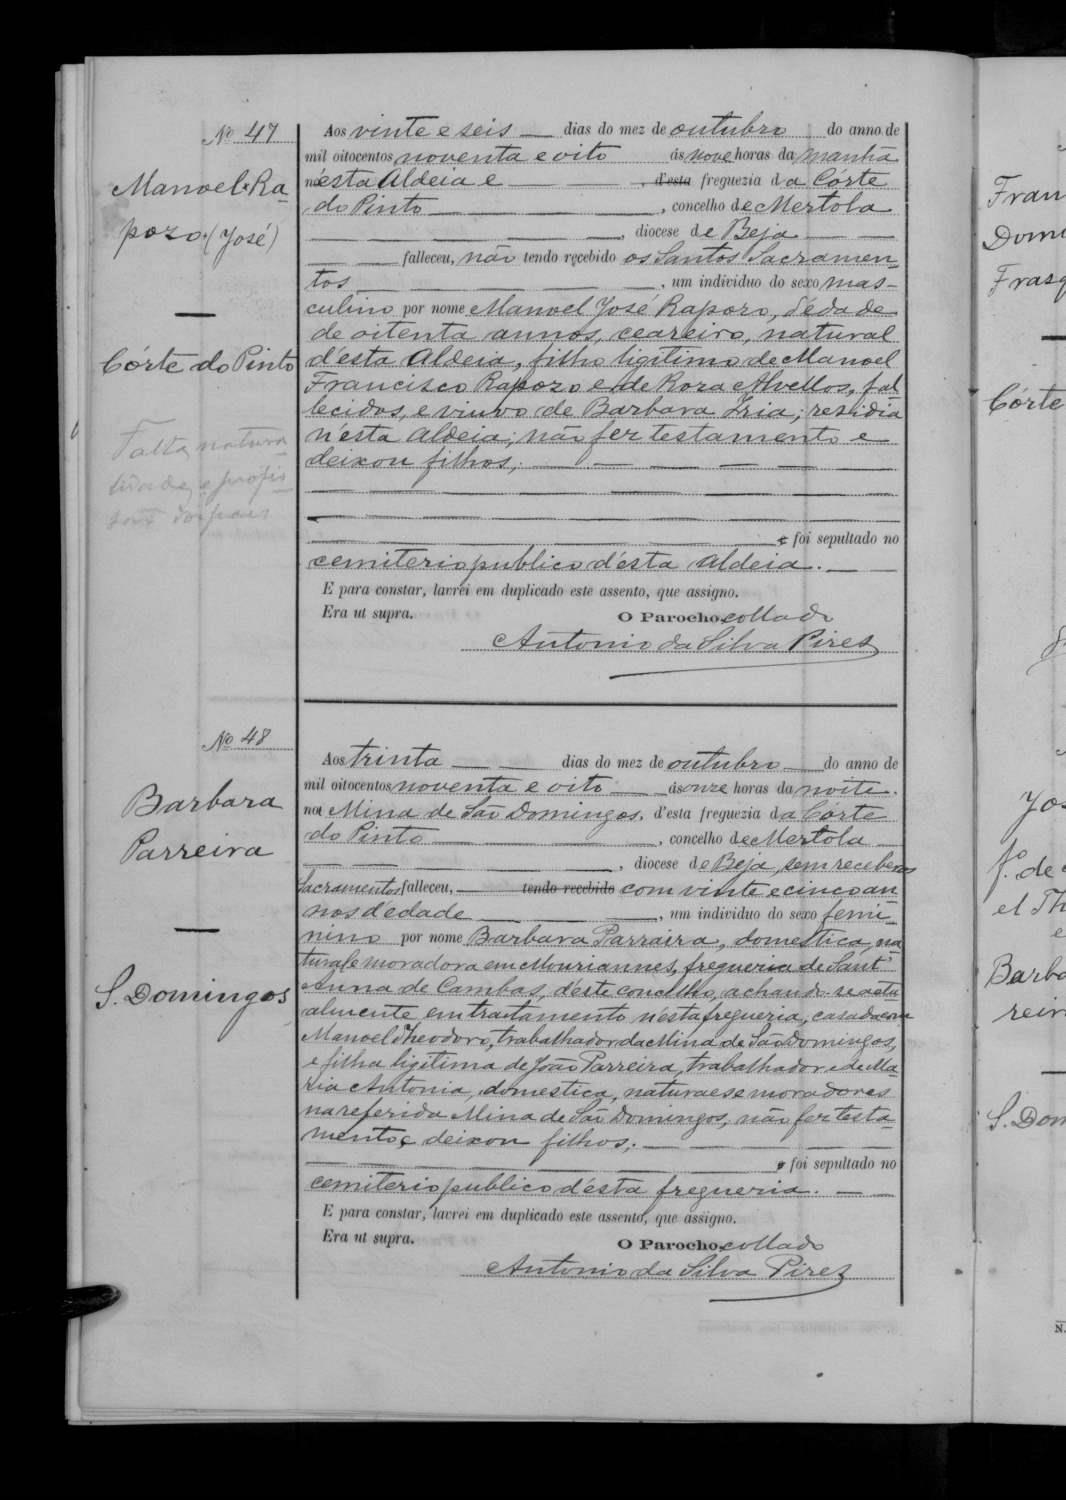 Nº 47
Manoel Ra-
pozo. (José)
Córte do Pinto
Falta natura-
lidade, e profis-
são dos paes
Aos vinte e seis dias do mez de outubro do anno de
mil oitocentos noventa e oito ás nove horas da manhã
n'ésta Aldeia e , d'esta freguezia da Córte
do Pinto , concelho de Mertola
, diocese de Beja
falleceu, não tendo recebido os Santos Sacramen-
tos , um individuo do sexo mas-
culino por nome Manoel José Rapozo, d'edade
de oitenta annos, ceareiro, natural
d'ésta Aldeia, filho ligitimo de Manoel
Francisco Rapozo e de Roza Alvellos, fal-
lecidos, e viuvo de Barbara Iria; residia
n'ésta Aldeia; não fez testamento e
deixou filhos;
e foi sepultado no
cemiterio publico d'ésta Aldeia.
E para constar, lavrei em duplicado este assento, que assigno.
Era ut supra.
O Parocho collado
Antonio da Silva Pires
Nº 48
Barbara
Parreira
S. Domingos
Aos trinta dias do mez de outubro do anno de
mil oitocentos noventa e oito ás onze horas da noite.
na Mina de São Domingos. d'esta freguezia da Córte
do Pinto , concelho de Mertola
, diocese de Beja, sem receber os
Sacramentos falleceu, tendo recebido com vinte e cinco an-
nos d'edade , um individuo do sexo femi-
nino por nome Barbara Parraira, domestica, na-
tural e moradora em Mouriannes, freguezia de Sant'
Anna de Cambas, d'éste concelho, achando-se actu-
almente em tractamento n'ésta freguezia, casada com
Manoel Theodoro, trabalhador da Mina de São Domingos,
e filha ligitima de João Parreira, trabalhador e de Ma-
ria Antonia, domestica, naturaes e moradores
na referida Mina de São Domingos, não fez testa-
mento e deixou filhos;
e foi sepultado no
cemiterio publico d'ésta freguezia.
E para constar, lavrei em duplicado este assento, que assigno.
Era ut supra.
O Parocho collado
Antonio da Silva Pires
Fran
Domi
Frasq
Córte
Jos
f.º de
el Th
e
Barba
reir
S. Dom
N.